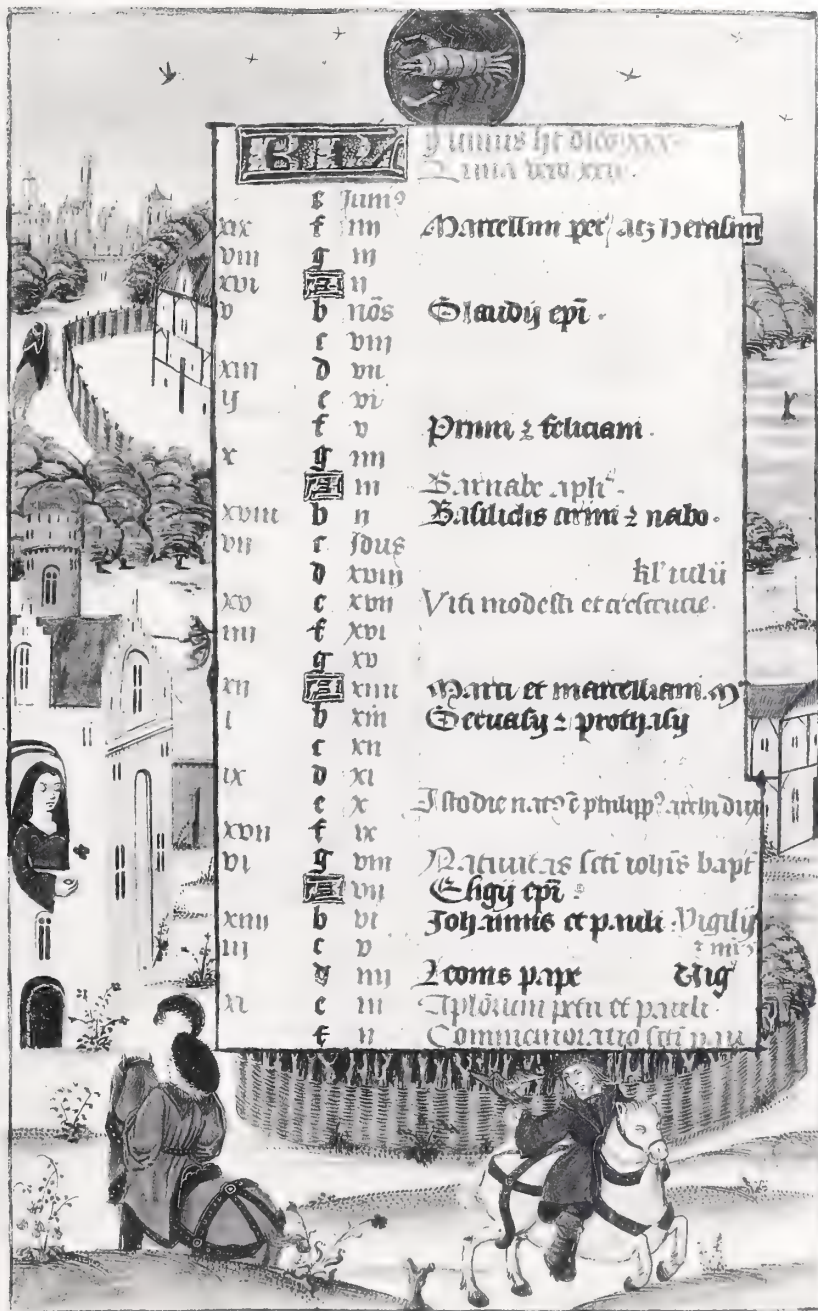 KL Junius ht dies xxx.
Luna vero xxix.
e Juni9
xix f iiij Marcellini pet' atz herasim
viii g iij
xvi A ij
v b nōs Claudij epī.
c viij
xiii d vii
ij e vi
f v Primi z feliciani.
x g iiij
A iij Barnabe apli.
xviii b ij Basilidis cirini z nabo.
vii c Idus
d xviij kl' iulii
xv e xvii Viti modesti et crescencie.
iiij f xvi
g xv
xii A xiiii Marci et marcelliani. m
i b xiii Geruasij z prothasij
c xii
ix d xi
e x Isto die nat9 ē philipp9 archidux
xvii f ix
vi g viii Natiuitas scti iohīs bapt
A vii Eligij epī.
xiiii b vi Johannis et pauli Vigilij
iii c v
d iiij Leonis pape Vig
xi e iii Aplōrum petri et pauli.
f ii Commemoratio scti pau